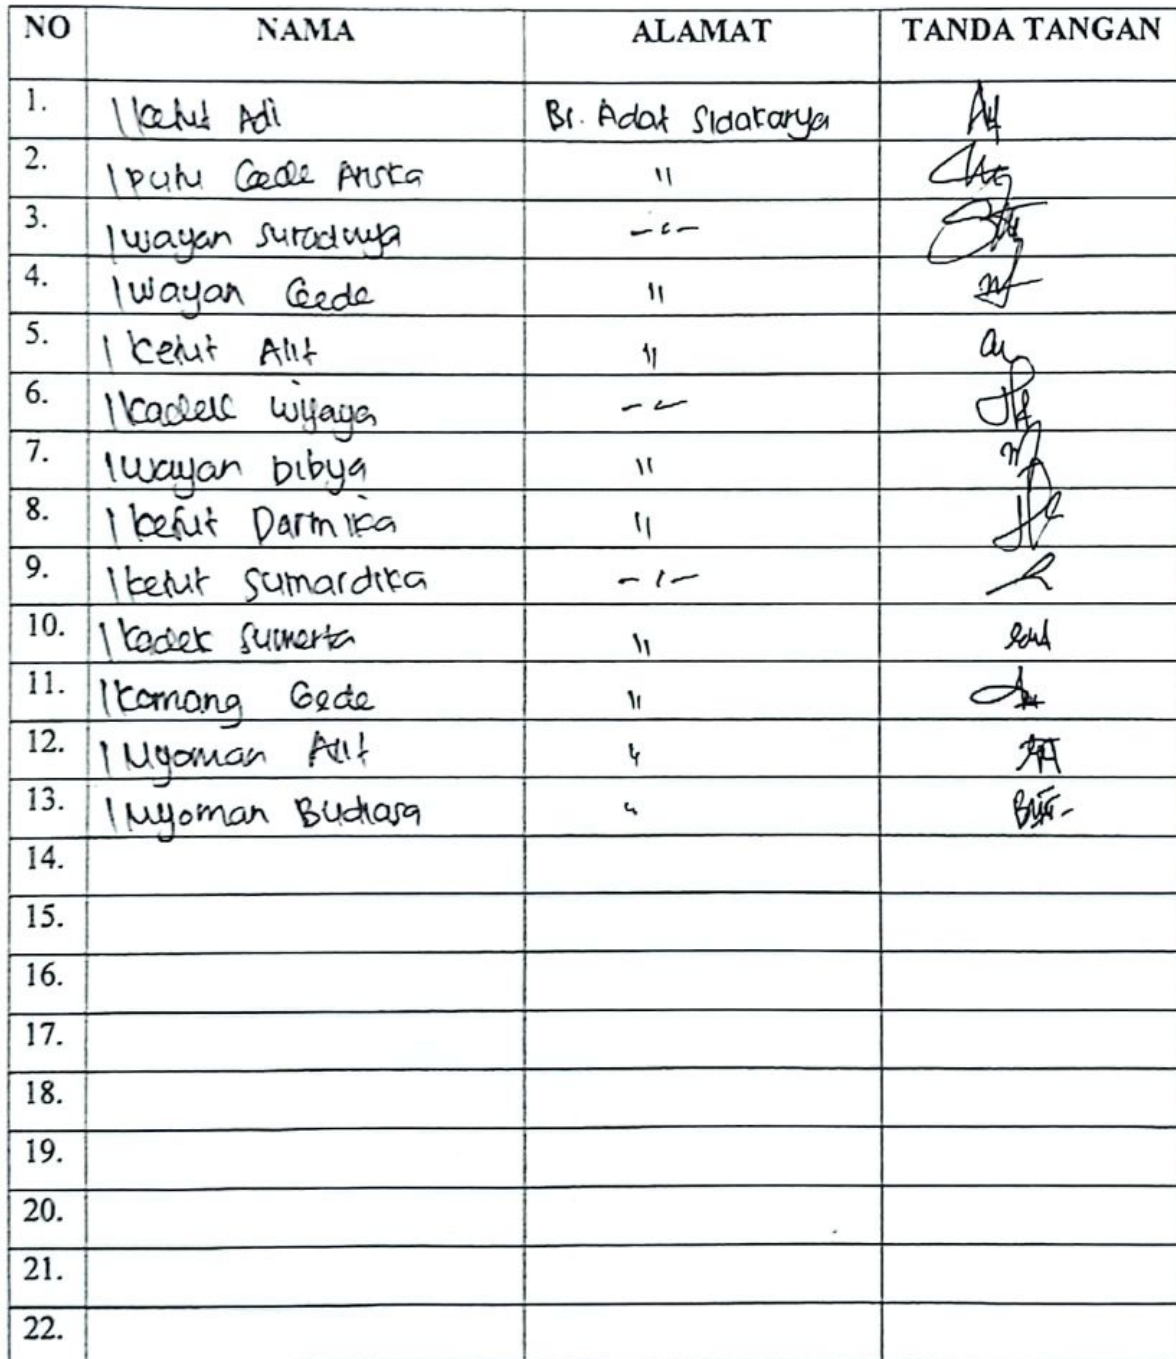 NO NAMA ALAMAT TANDA TANGAN
1. I Ketut Adi Br. Adat Sidakarya
2. I Putu Gede Ariska "
3. I wayan suradnya -"-
4. I wayan Gede "
5. I Ketut Alit "
6. I Kadek wijaya -"-
7. I wayan Dibya "
8. I Ketut Darmika "
9. I Ketut Sumardika -"-
10. I Kadek Sumerta "
11. I Komang Gede "
12. I Nyoman Alit "
13. I Nyoman Budiasa "
14.
15.
16.
17.
18.
19.
20.
21.
22.